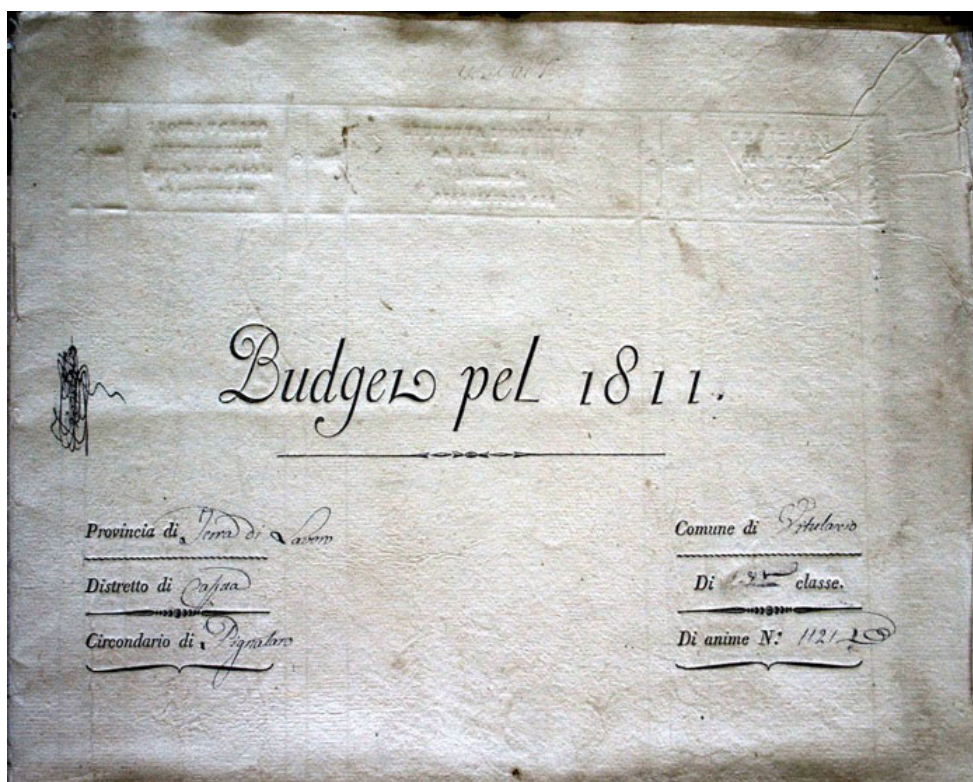 Budget pel 1811.
Provincia di Terra di Lavoro
Distretto di Capua
Circondario di Pignataro
Comune di Vitulazio
Di classe.
Di anime N.º 1121